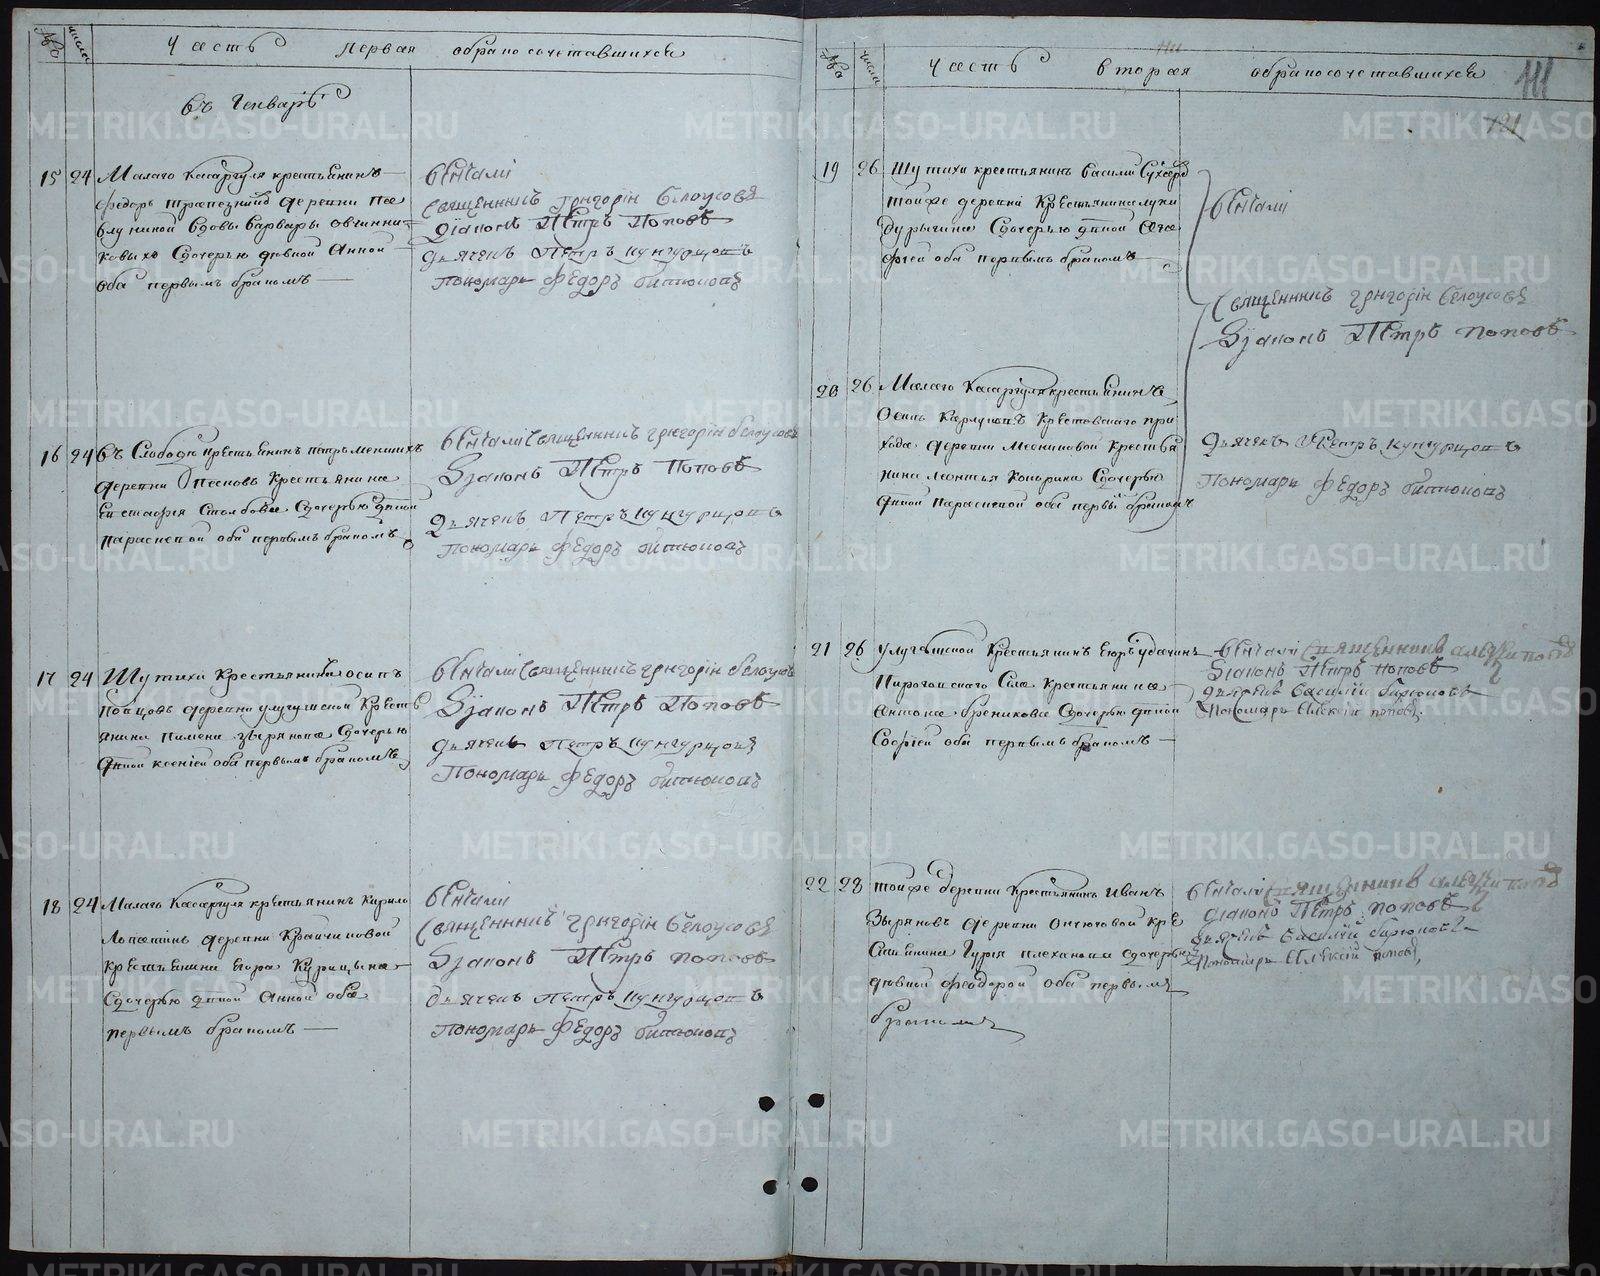 №
числа
Часть первая обраносочетавшихся
въ Генварѣ
15 24 Малаго Касаргуля крестьянинъ
федоръ трапезнинъ деревни Па
блуниной вдовы варвары овчинни
ковыхъ Сдочерью дѣвной Анной
оба первымъ бракомъ
вѣнчали
Священникъ григорiй бѣлоусовъ
Дiаконъ Петръ Поповъ
дьячекъ Петръ кунгурцовъ
Пономарь федоръ битюковъ
16 24 въ Слободѣ крестьянинъ петръ меншихъ
деревни Песковъ Крестьянина
Евстафiя Столбова Сдочерью дѣвной
параскевой оба первымъ бракомъ
вѣнчали Священникъ григорiй бѣлоусовъ
Дiаконъ Петръ Поповъ
дьячекъ Петръ кунгурцовъ
Пономарь федоръ битюковъ
17 24 Шутихи Крестьянинъ осипъ
деревни улугушской Крестьъ
янина пимена зырянова Сдочерью
дѣвной ксенiей оба первымъ бракомъ
вѣнчали Священникъ григорiй бѣлоусовъ
Дiаконъ Петръ Поповъ
дьячекъ Петръ кунгурцовъ
Пономарь федоръ битюковъ
18 24 Малаго Касаргуля крестьянинъ Кирило
Лопатинъ деревни Крайчиковой
крестьянина Егора Курицына
Сдочерью дѣвной Анной оба
первымъ бракомъ
вѣнчали
Священникъ григорiй бѣлоусовъ
Дiаконъ Петръ поповъ
дьячекъ Петръ кунгурцовъ
Пономарь федоръ битюковъ
№
числа
Часть вторая обраносочетавшихся
111
121
19 26 Шутихи крестьянинъ василий
тойже деревни Крестьянина луки
дурыгина Сдочерью дѣвной Ага
фiей оба первымъ бракомъ
вѣнчали
Священникъ григорiй бѣлоусовъ
Дiаконъ Петръ поповъ
20 26 Малаго Касаргуля крестьянинъ
Осипъ Карлуковъ Крестовскаго при
хода деревни Мясниковой Крестья
нина леонтья Кокорина Сдочерью
дѣвной параскевой оба первы бракомъ
дьячекъ Петръ кунгурцовъ
Пономарь федоръ битюковъ
21 26 улугушской Крестьянинъ Егоръ удачинъ
Пироговскаго Села Крестьянина
антона бреникова Сдочерью дѣвной
Софiей оба первымъ бракомъ
вѣнчали священникъ
Дiаконъ Петръ поповъ
дьячекъ василiй бирюковъ
Пономарь Алексiй поповъ
22 28 тойже деревни Крестьянинъ Иванъ
Зыряновъ деревни Окчюговой кре
стьянина Гурiя плеханова Сдочерью
дѣвной феодорой оба первымъ
бракомъ
вѣнчали священникъ
дiаконъ Петръ поповъ
дьячекъ василiй бирюковъ
Пономарь Алексiй поповъ
METRIKI.GASO-URAL.RU